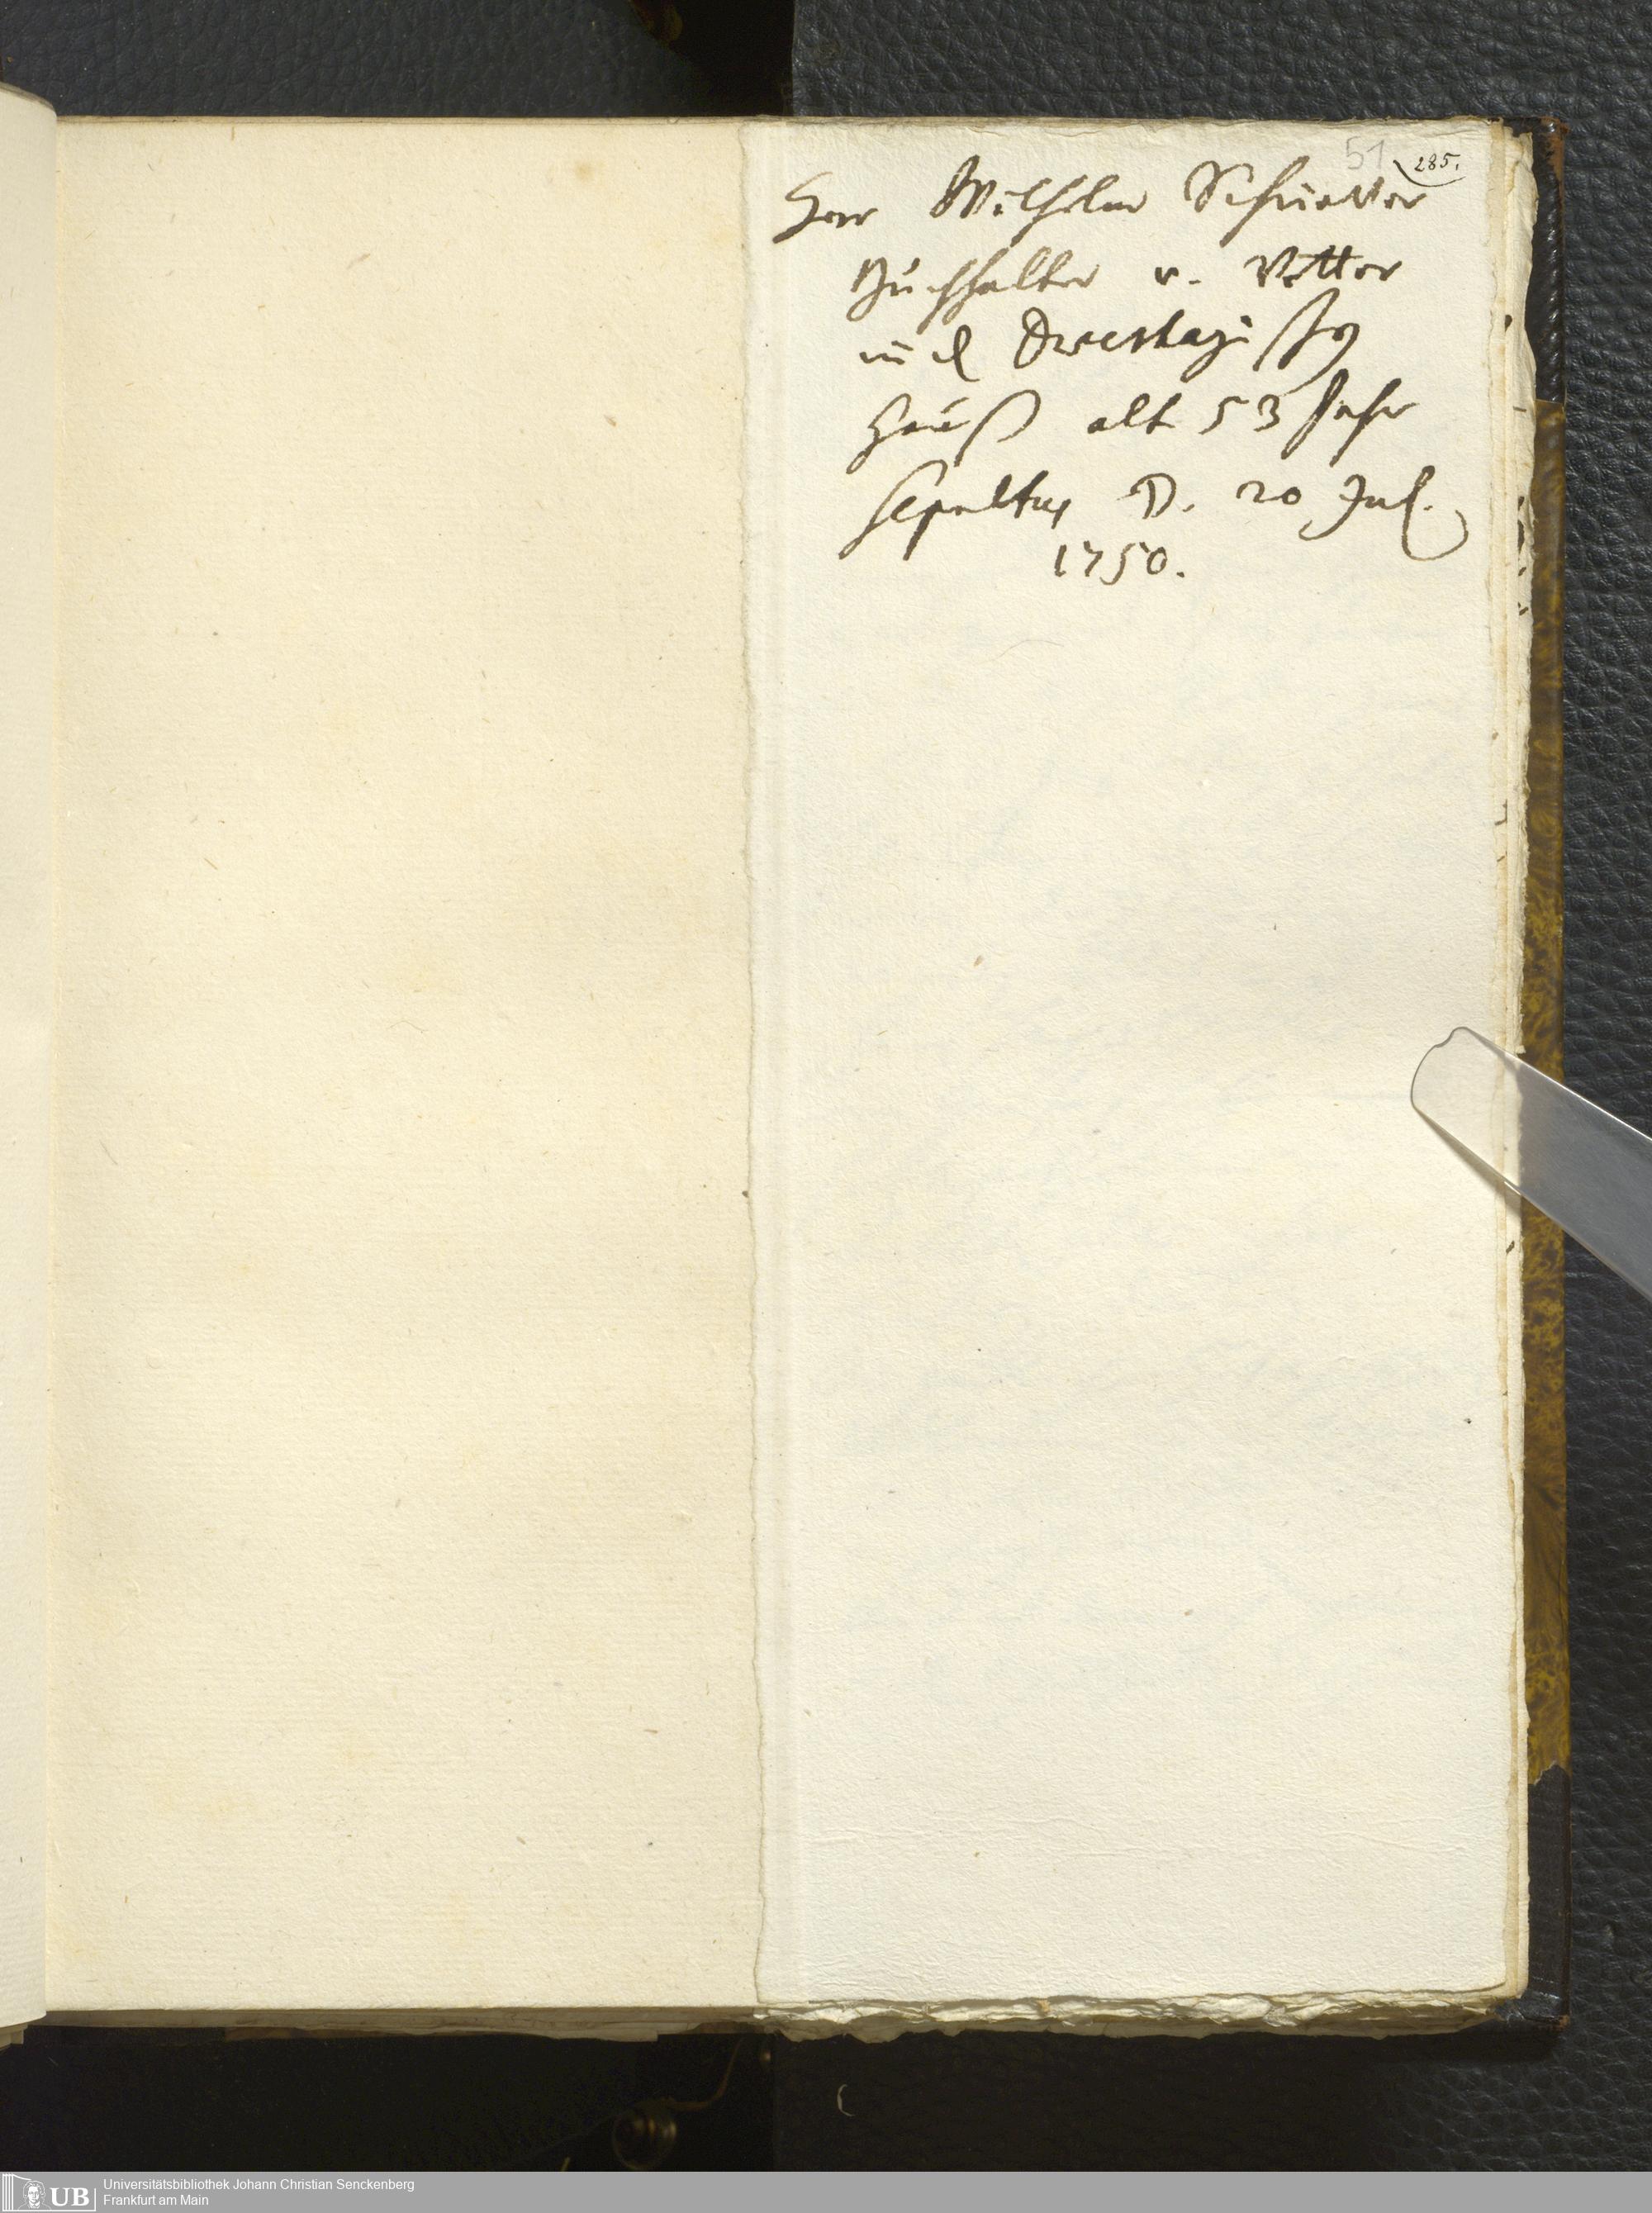 51 285.
Herr Wilhelm
Buchhalter u. Vetter
in d
Hauß alt 53 Jahr
sepultus D. 20 Jul.
1750.
UB Universitätsbibliothek Johann Christian Senckenberg
Frankfurt am Main